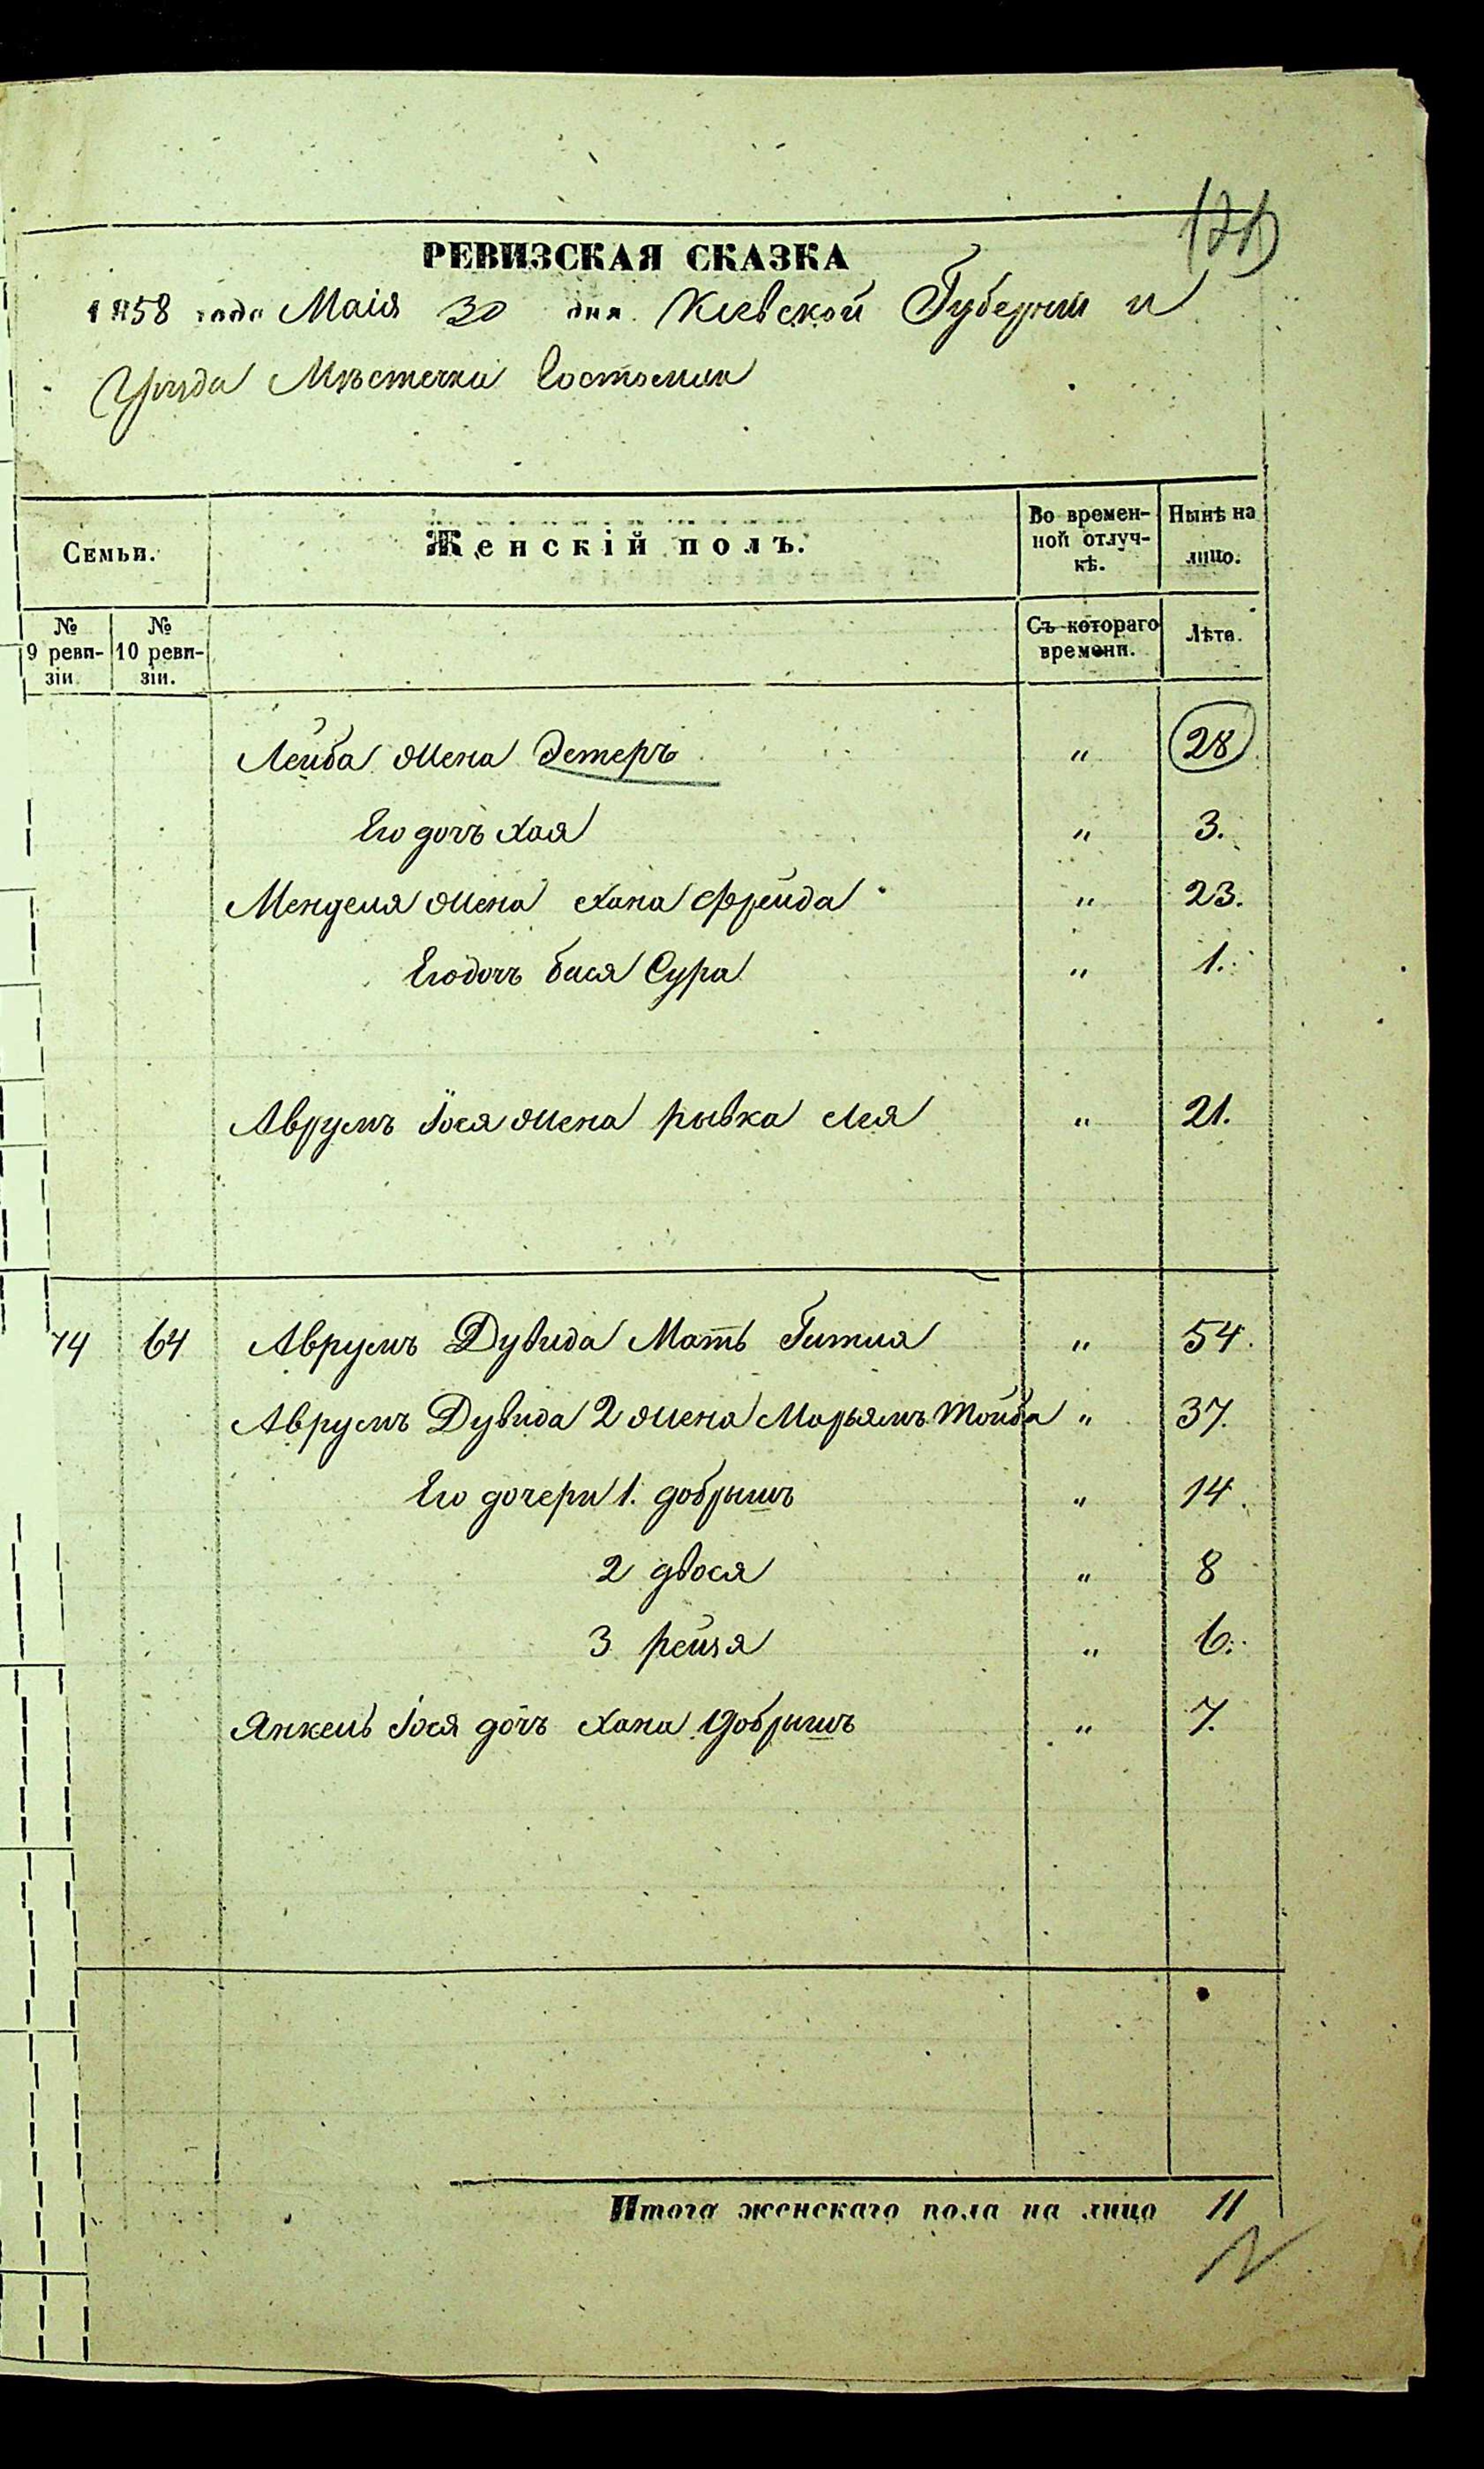 121
РЕВИЗСКАЯ СКАЗКА
1858 года Маія 30 дня. Кіевской Губерніи и
Уѣзда Мѣстечка
Семьи. Женскій полъ. Во времен-ной отлуч-кѣ. Нынѣ на лицо.
№ 9 реви-зіи № 10 реви-зіи. Съ котораго времени. Лѣта.
Лейба жена Эстеръ " 28
Его дочь Хая " 3.
Менделя жена Хана Фрейда " 23.
Его дочь Бася Сура " 1.
Аврумъ Іося жена Рывка Лея " 21.
74 64 Аврумъ Дувида Мать Гитля " 54.
Аврумъ Дувида 2 жена Марьямъ Тойба " 37.
Его дочери 1. Добрышъ " 14.
2 Двося " 8
3 Рейзя " 6.
Янкель Іося дочь Хана Добрышъ " 7.
Итого женскаго пола на лицо 11